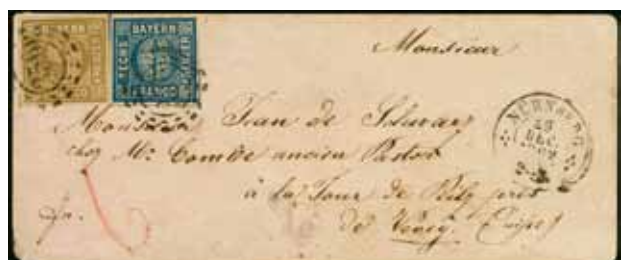 BAYERN
FRANCO
BAYERN
SECHS
FRANCO
Monsieur
Monsieur Jean de Schwarz
chez Mr. Combe ancien Pastor
à la Tour de Pilz près
de Vevey. (Suisse)
fr.
NÜRNBERG
DEC.